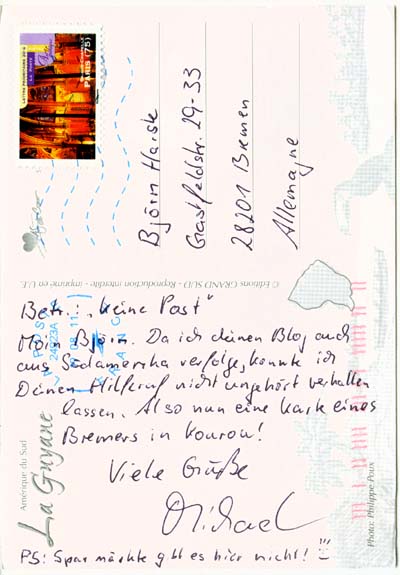 LETTRE PRIORITAIRE 20g
LA POSTE
PARIS (75)
Björn Harste
Gastfeldstr. 29-33
28201 Bremen
Allemagne
© Editions GRAND SUD - Reproduction interdite - imprimé en U.E.
Betr.: "Keine Post"
Moin Björn. Da ich deinen Blog auch
aus Südamerika verfolge, konnte ich
Deinen Hilferuf nicht ungehört verhallen
lassen. Also nun eine Karte eines
Bremers in Kourou!
Viele Grüße
Michael
PS: Sparmärkte gibt es hier nicht!
Amérique du Sud
La Guyane
Photo: Philippe Poux